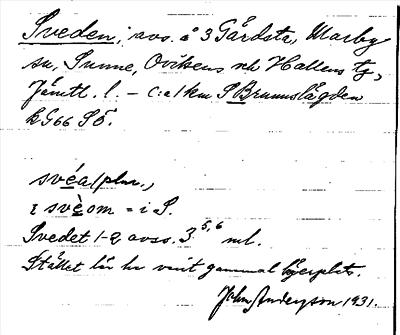 Sveden, avs. å 3 Gärdsta, Marby
sn, Sunne, Ovikens och Hallens tg,
Jämtl. l. – C:a 1 km S Brunnslägden
k G66 SÖ.
svéa (plur.,
i svèom = i S.
Svedet 1-2 avss. 3 5,6 ml.
Stället lär ha varit gammal
John Anderzson 1931.